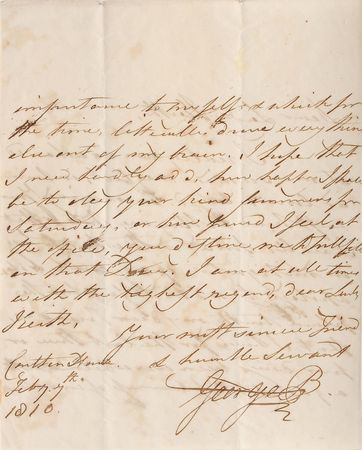 importance to myself & which for
the time, literally drove every thing
else out of my brain. I hope that
I need hardly add, how happy I shall
be to obey your kind summons for
Saturday, or how proud I feel, at
the
you destine me
on that I am at all time
with the highest regard, dear Lady
Keith,
Your most sincere Friend
& humble Servant
Carlton House
Feby 7th
1810.
George P